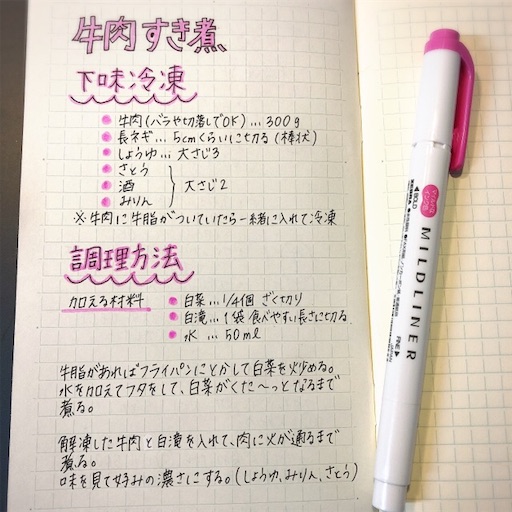 牛肉すき煮
下味冷凍
牛肉(バラや切落しでOK)…300g
長ネギ…5cmくらいに切る(棒状)
しょうゆ…大さじ3
さとう
酒 大さじ2
みりん
※牛肉に牛脂がついていたら一緒に入れて冷凍
調理方法
加える材料
白菜…1/4個 ざく切り
白滝…1袋 食べやすい長さに切る
水…50ml
牛脂があればフライパンにとかして白菜を炒める。
水を加えてフタをして、白菜がくた〜っとなるまで
煮る。
解凍した牛肉と白滝を入れて、肉に火が通るまで
煮る。
味を見て好みの濃さにする。(しょうゆ、みりん、さとう)
BOLD
ZEBRA
MILDLINER
FINE